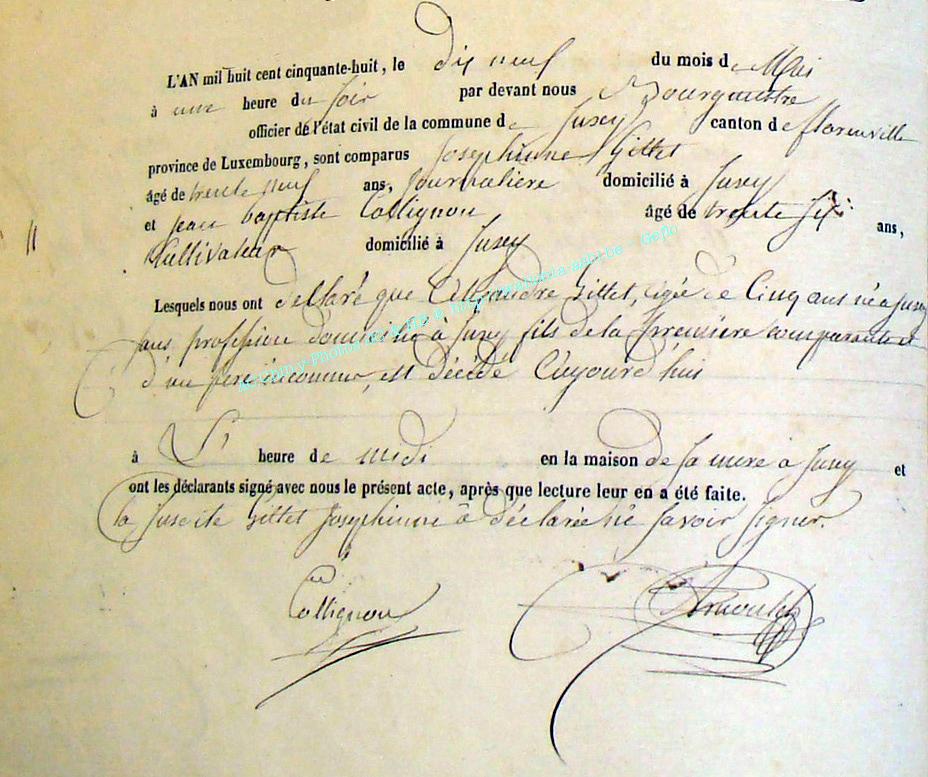 L'AN mil huit cent cinquante-huit, le dix neuf du mois de Mai
à une heure du Soir par devant nous Bourgmestre
officier de l'état civil de la commune de Jusey canton de florenville
province de Luxembourg, sont comparus Josephinne Gillet
âgé de trente neuf ans, Journalière domicilié à Jusey
et jean baptiste Collignon âgé de trente Six ans,
Cultivateur domicilié à Jusey
Lesquels nous ont déclaré que Alexandre Gillet, agé de Cinq ans né a jusey
sans profession domicilié à jusey fils de la Première comparante et
d'un père inconnu, est décédé Aujourd'hui
à heure de midi en la maison de Sa mere à Jusey et
ont les déclarants signé avec nous le présent acte, après que lecture leur en a été faite.
la Suscite Gillet Josephinne à déclarée ne Savoir Signer.
Collignon